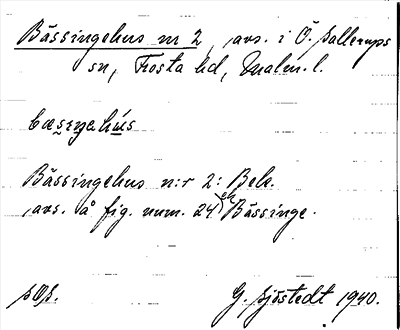 Bässingehus nr 2, avs. i Ö. Sallerups
sn, Frosta hd, Malm. l.
Bässingehus n:r 2: Beb.
avs. å fig. num. 24 eh Bässinge.
SOS.
G. Sjöstedt 1940.